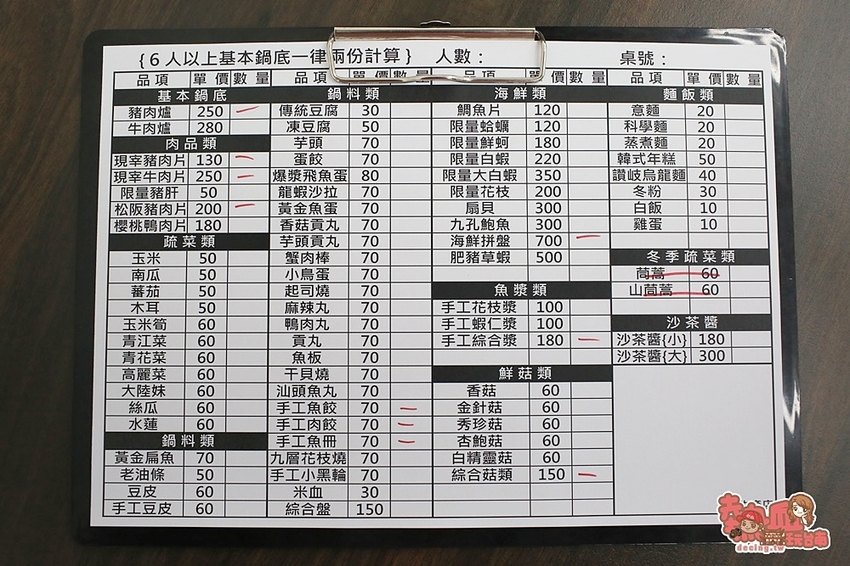 {6人以上基本鍋底一律兩份計算} 人數： 桌號：
品項 單價 數量
基本鍋底
豬肉爐 250
牛肉爐 280
肉品類
現宰豬肉片 130
現宰牛肉片 250
限量豬肝 50
松阪豬肉片 200
櫻桃鴨肉片 180
蔬菜類
玉米 50
南瓜 50
蕃茄 50
木耳 50
玉米筍 60
青江菜 60
青花菜 60
高麗菜 60
大陸妹 60
絲瓜 60
水蓮 60
鍋料類
黃金扁魚 70
老油條 50
豆皮 60
手工豆皮 60
品項 單價 數量
鍋料類
傳統豆腐 30
凍豆腐 50
芋頭 70
蛋餃 70
爆漿飛魚蛋 80
龍蝦沙拉 70
黃金魚蛋 70
香菇貢丸 70
芋頭貢丸 70
蟹肉棒 70
小鳥蛋 70
起司燒 70
麻辣丸 70
鴨肉丸 70
貢丸 70
魚板 70
干貝燒 70
汕頭魚丸 70
手工魚餃 70
手工肉餃 70
手工魚冊 70
九層花枝燒 70
手工小黑輪 70
米血 30
綜合盤 150
品項 單價 數量
海鮮類
鯛魚片 120
限量蛤蠣 120
限量鮮蚵 180
限量白蝦 220
限量大白蝦 350
限量花枝 200
扇貝 300
九孔鮑魚 300
海鮮拼盤 700
肥豬草蝦 500
魚漿類
手工花枝漿 100
手工蝦仁漿 100
手工綜合漿 180
鮮菇類
香菇 60
金針菇 60
秀珍菇 60
杏鮑菇 60
白精靈菇 60
綜合菇類 150
品項 單價 數量
麵飯類
意麵 20
科學麵 20
蒸煮麵 20
韓式年糕 50
讚岐烏龍麵 40
冬粉 30
白飯 10
雞蛋 10
冬季蔬菜類
茼蒿 60
山茼蒿 60
沙茶醬
沙茶醬{小} 180
沙茶醬{大} 300
decing.tw